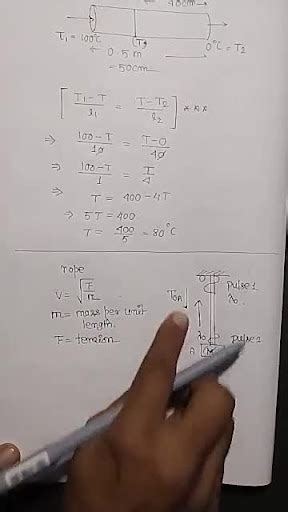 40cm
T₁ = 100°C
T
0°C = T₂
0.5 m
= 50cm
[ (T₁ - T)/l₁ = (T - T₂)/l₂ ] ***
⇒ (100 - T)/10 = (T - 0)/40
⇒ (100 - T)/1 = T/4
⇒ T = 400 - 4T
⇒ 5T = 400
T = 400/5 = 80°C
rope
V = √(F/m)
m = mass per unit
length.
F = tension
pulse 1
λ₀
pulse 2
A